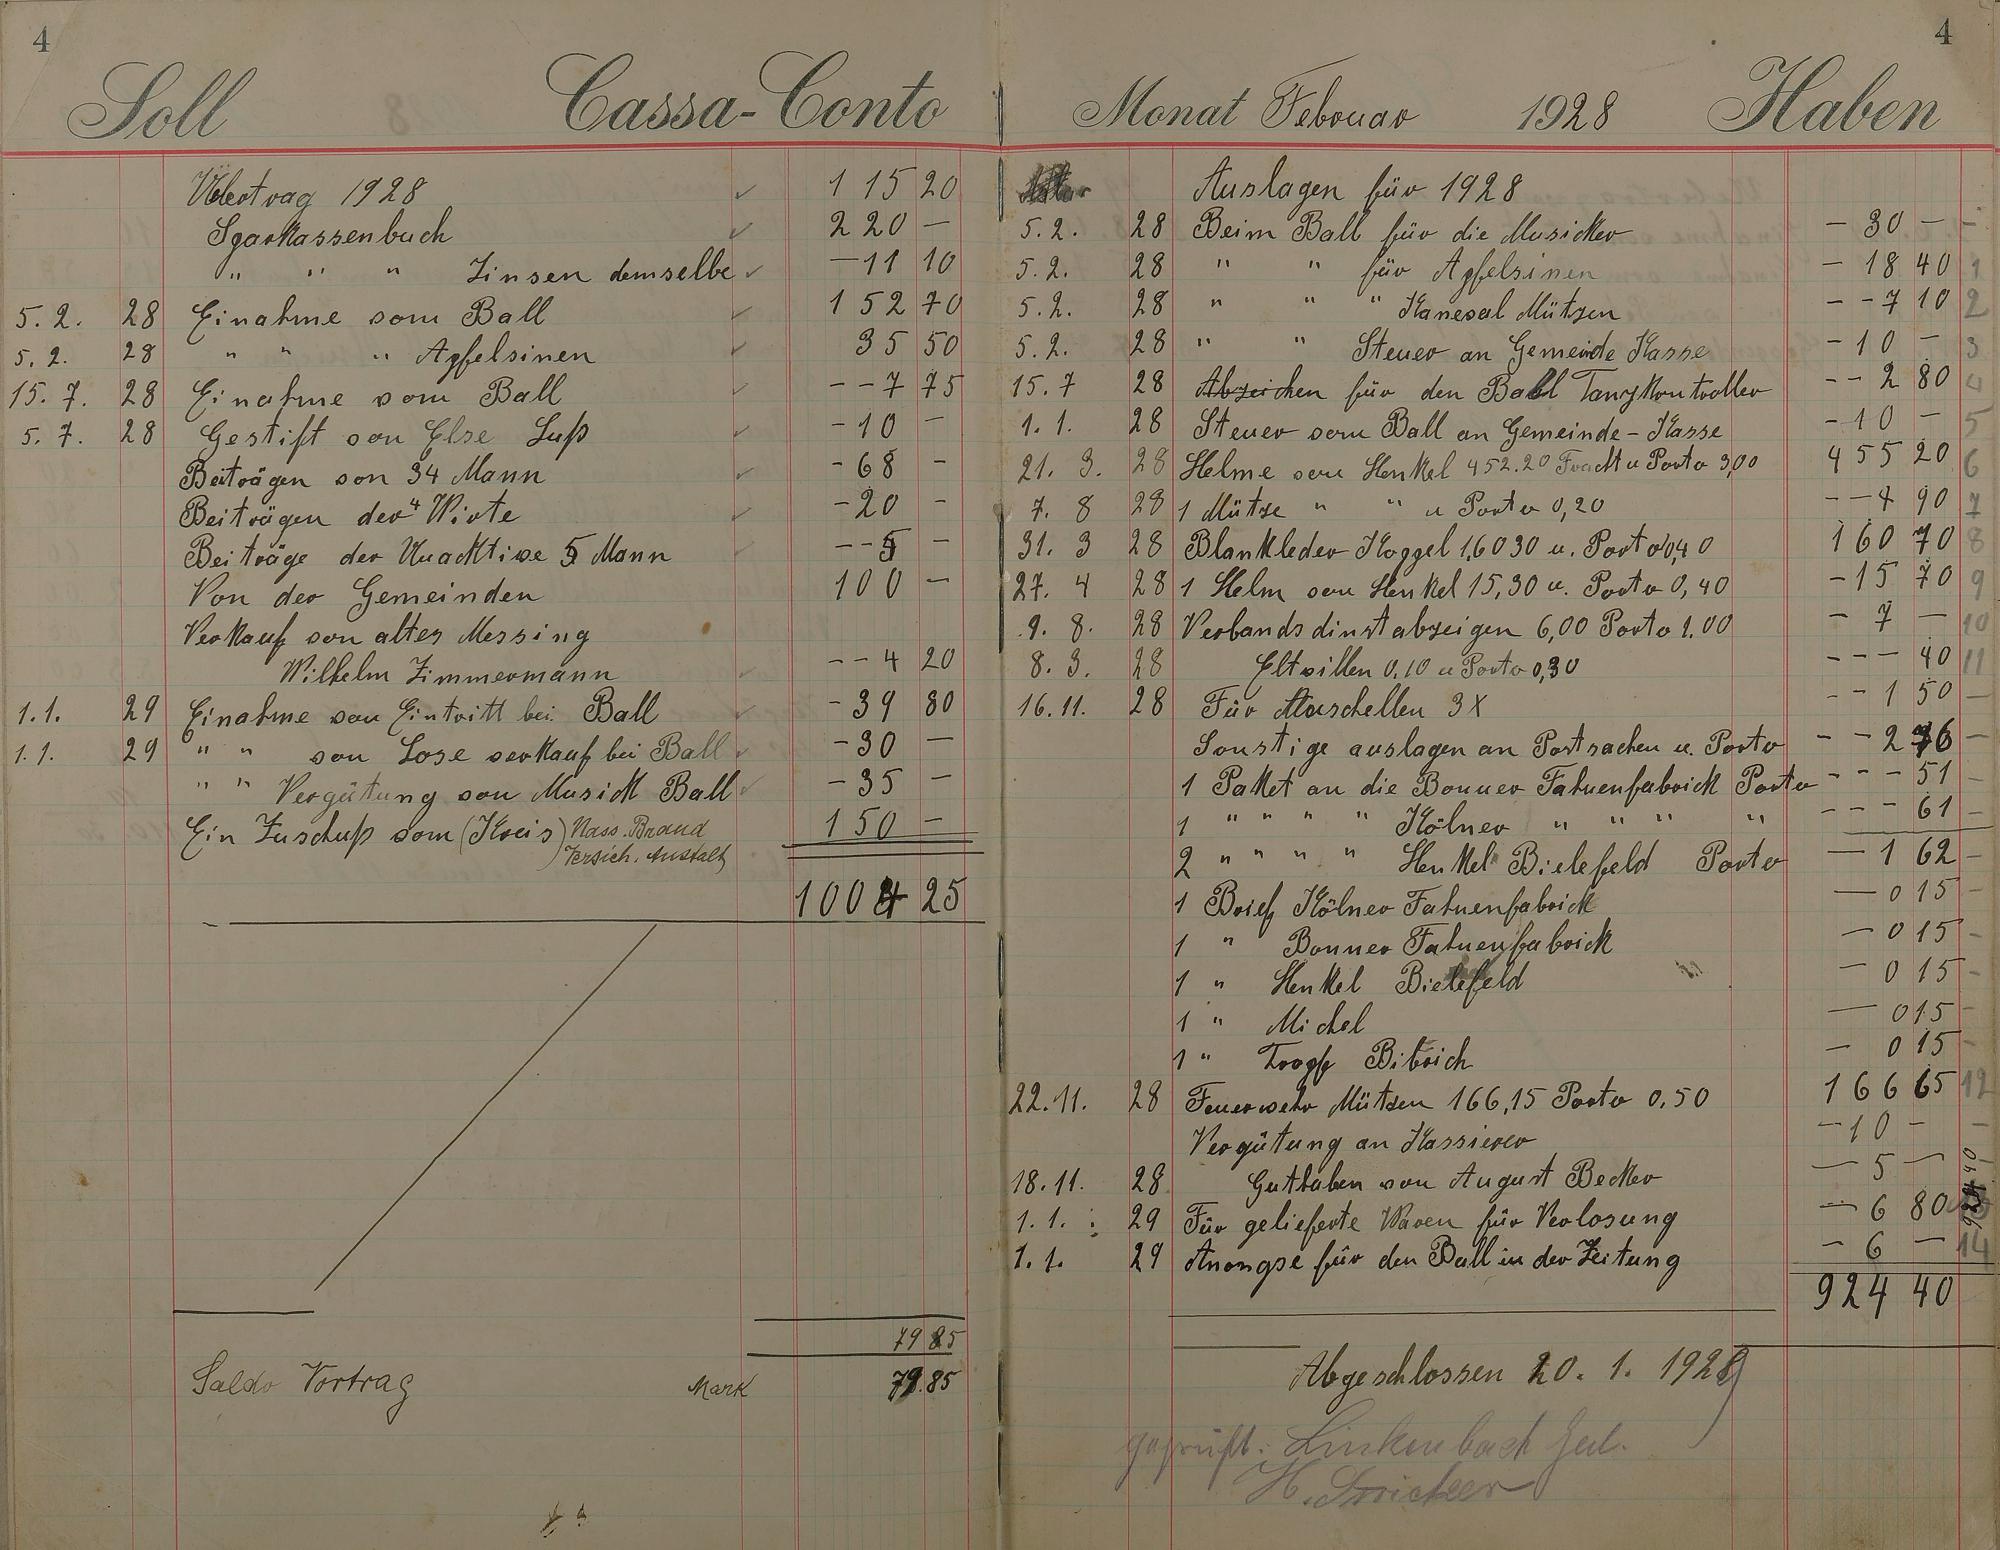 4
Soll Cassa-Conto
Übertrag 1928 ✓ 115 20
Sparkassenbuch ✓ 220 —
" " " Zinsen demselbe ✓ — 11 10
5. 2. 28 Einahme vom Ball ✓ 152 70
5. 2. 28 " " " Apfelsinen ✓ 35 50
15. 7. 28 Einahme vom Ball ✓ - - 7 75
5. 7. 28 Gestift von Else Luß ✓ - 10 —
Beiträgen von 34 Mann ✓ - 68 —
Beiträgen der 4 Wirte ✓ - 20 -
Beiträge der Unacktive 5 Mann ✓ - - 5 —
Von der Gemeinden 100 —
Verkauf von altes Messing
Wilhelm Zimmermann ✓ - - 4 20
1.1. 29 Einahme von Eintritt bei Ball ✓ - 39 80
1.1. 29 " " von Lose verkauf bei Ball ✓ - 30 —
" " Vergütung von Musick Ball ✓ - 35 —
Ein Zuschuß vom (Kreis) Nass. Brand 150 —
Versich. Anstalt
1004 25
79 85
Saldo Vortrag Mark 79.85
4
Monat Februar 1928 Haben
Auslagen für 1928
5. 2. 28 Beim Ball für die Musicker — 30 — -
5. 2. 28 " " für Apfelsinen - 18 40 1
5. 2. 28 " " " Kaneval Mützen - - 7 10 2
5. 2. 28 " " Steuer an Gemeinde Kasse - 10 — 3
15. 7 28 Abzeichen für den Ball Tanzkontroller - - 2 80 4
1. 1. 28 Steuer vom Ball an Gemeinde-Kasse - 10 — 5
21. 3. 28 Helme von Henkel 452.20 Fracht u Porto 3,00 455 20 6
7. 8 28 1 Mütze " " u Porto 0,20 - - 4 90 7
31. 3 28 Blankleder Koppel 160 30 u. Porto 0,40 160 70 8
27. 4 28 1 Helm von Henkel 15,30 u. Porto 0,40 - 15 70 9
9. 8. 28 Verbandsdinstabzeigen 6,00 Porto 1.00 - 7 — 10
8. 3. 28 Eltvillen 0.10 u Porto 0,30 - - - 40 11
16. 11. 28 Für 3 X - - 1 50 —
Sonstige auslagen an Postsachen u. Porto - - 2 76 —
1 Paket an die Bonner Fahnenfabrick Porto - - - 51 -
1 " " " " Kölner " " " " - - - 61 -
2 " " " " Henkel Bielefeld Porto — 1 62 -
1 Brief Kölner Fahnenfabrick — 0 15 -
1 " Bonner Fahnenfabrick — 0 15 -
1 " Henkel Bielefeld — 0 15 -
1 " Michel — 0 15 -
1 " Tropp Bibrich — 0 15 -
22. 11. 28 Feuerwehr Mützen 166,15 Porto 0,50 166 65 12
Vergütung an Kassierer - 10 - -
18. 11. 28 Guthaben von August Becker — 5 —
1. 1. 29 Für gelieferte Waren für Verlosung — 6 80
1. 1. 29 Anongse für den Ball in der Zeitung — 6 — 14
924 40
924 40
Abgeschlossen 20. 1. 1929
geprüft: Linkenbach
H. Stricker